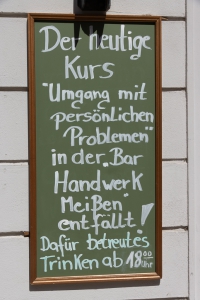 Der heutige
Kurs
"Umgang mit
persönlichen
Problemen"
in der "Bar
Handwerk
Meißen"
entfällt!
Dafür betreutes
Trinken ab 18⁰⁰ Uhr